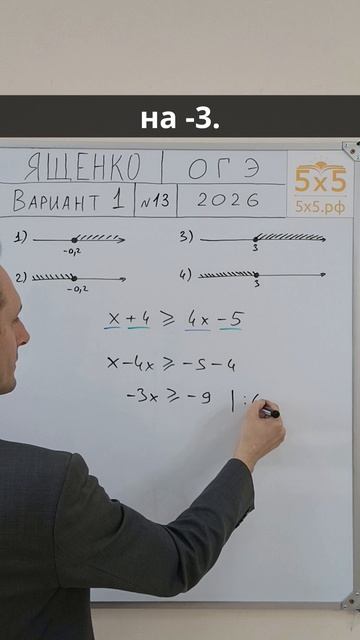 на -3.
ЯЩЕНКО ОГЭ
ВАРИАНТ 1 №13 2026
5х5
5х5.рф
1) -0,2
3) 3
2) -0,2
4) 3
x + 4 ⩾ 4x - 5
x - 4x ⩾ -5 - 4
-3x ⩾ -9 | : (